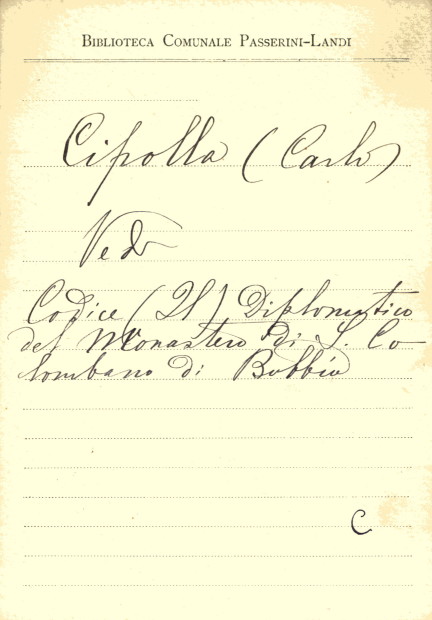 BIBLIOTECA COMUNALE PASSERINI-LANDI
Cipolla (Carlo)
Vedi
Codice (Il) Diplomatico
del Monastero di S. Co-
lombano di Bobbio
C